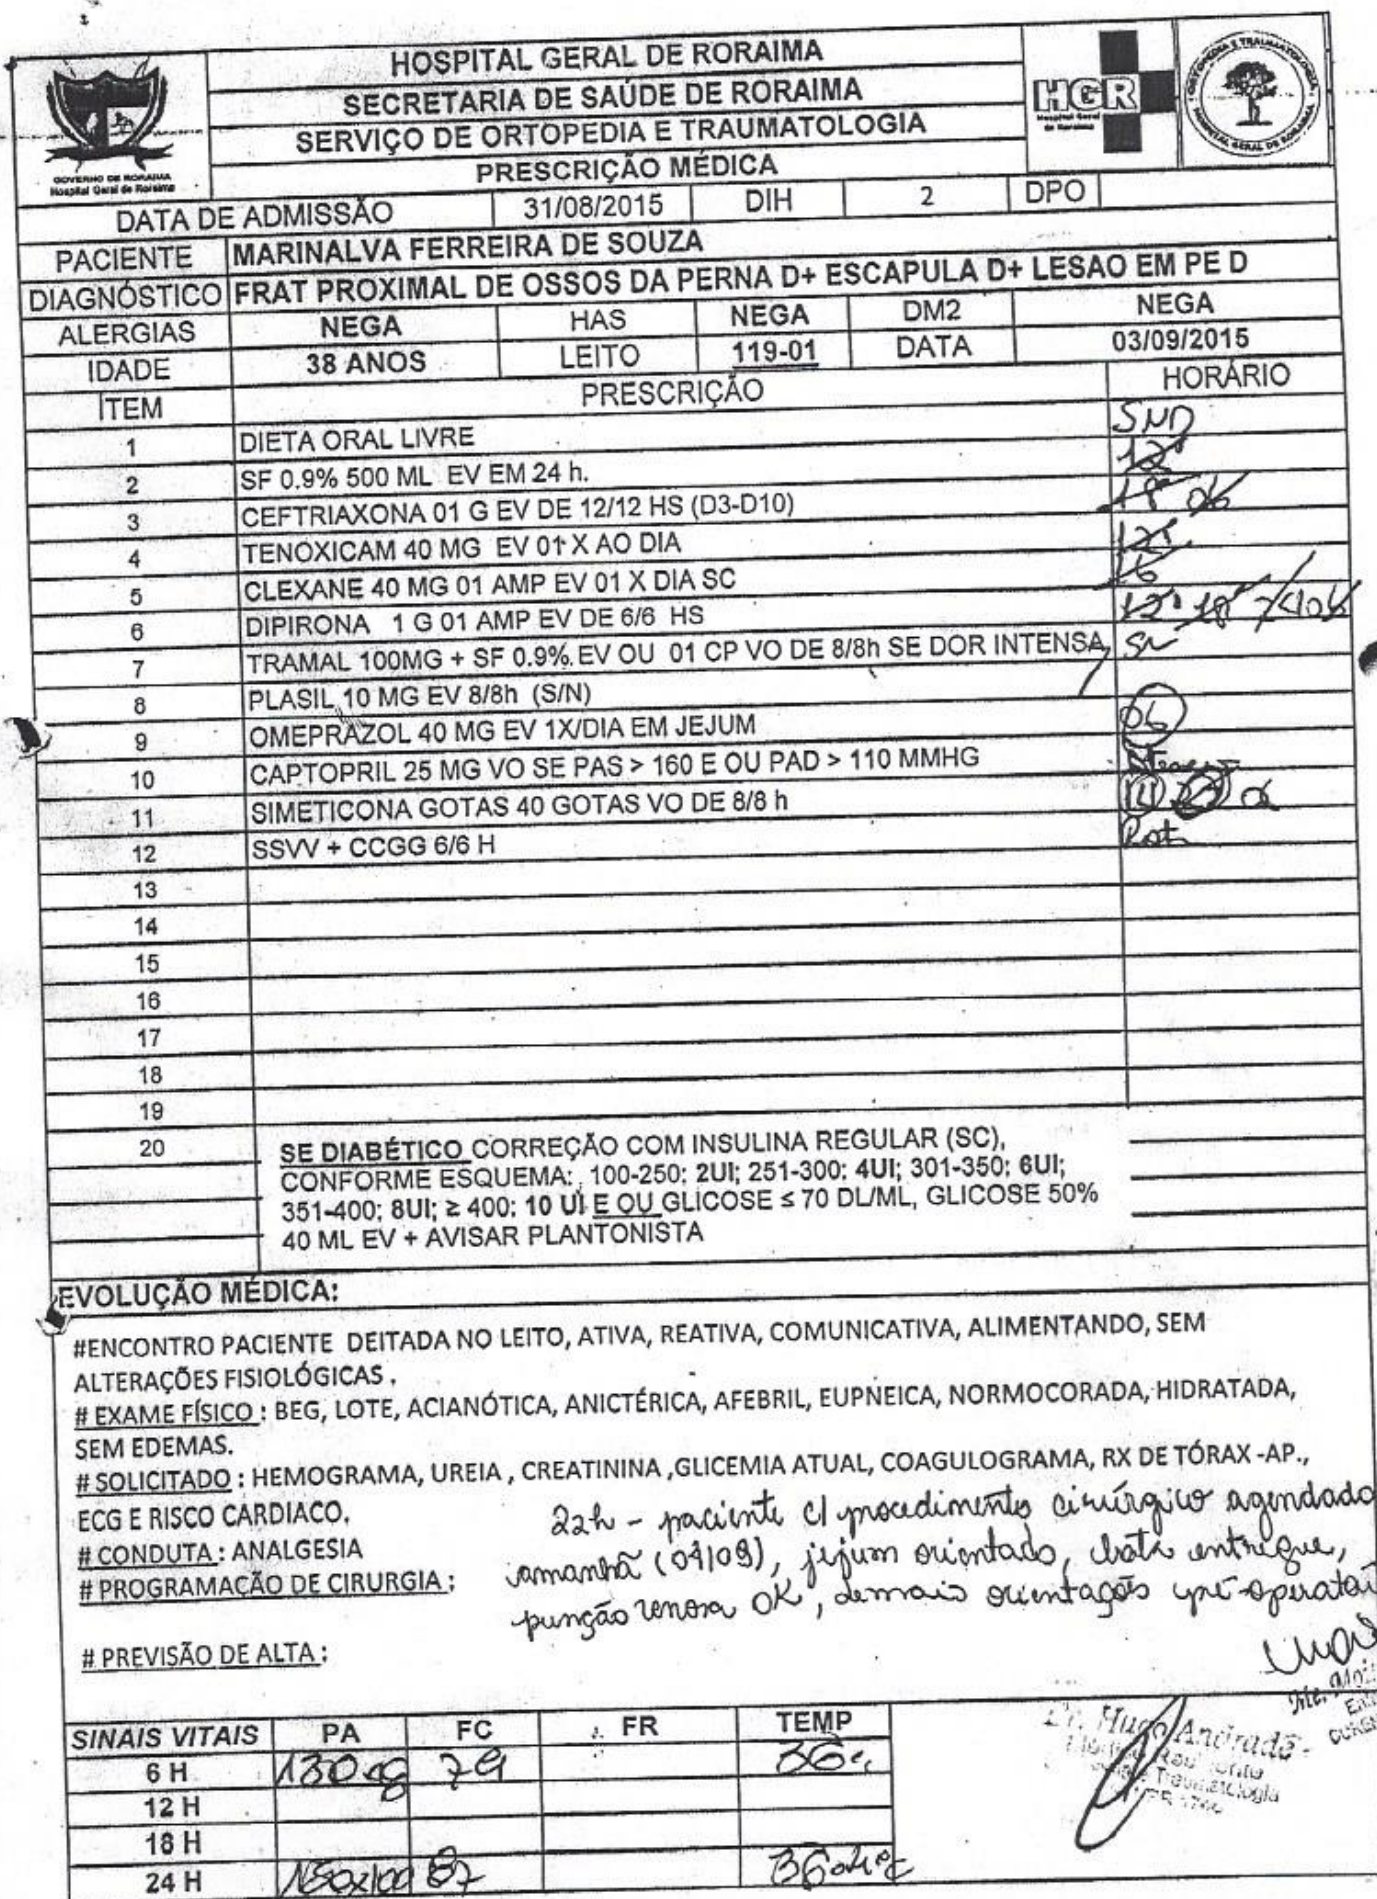 HOSPITAL GERAL DE RORAIMA
SECRETARIA DE SAÚDE DE RORAIMA
SERVIÇO DE ORTOPEDIA E TRAUMATOLOGIA
PRESCRIÇÃO MÉDICA
GOVERNO DE RORAIMA
Hospital Geral de Roraima
HGR
Hospital Geral de Roraima
ORTOPEDIA E TRAUMATOLOGIA
HOSPITAL GERAL DE RORAIMA
DATA DE ADMISSÃO 31/08/2015 DIH 2 DPO
PACIENTE MARINALVA FERREIRA DE SOUZA
DIAGNÓSTICO FRAT PROXIMAL DE OSSOS DA PERNA D+ ESCAPULA D+ LESAO EM PE D
ALERGIAS NEGA HAS NEGA DM2 NEGA
IDADE 38 ANOS LEITO 119-01 DATA 03/09/2015
ITEM PRESCRIÇÃO HORÁRIO
1 DIETA ORAL LIVRE SND
2 SF 0.9% 500 ML EV EM 24 h. 12
3 CEFTRIAXONA 01 G EV DE 12/12 HS (D3-D10) 18 06
4 TENOXICAM 40 MG EV 01 X AO DIA 12
5 CLEXANE 40 MG 01 AMP EV 01 X DIA SC 16
6 DIPIRONA 1 G 01 AMP EV DE 6/6 HS 12 18 24 06
7 TRAMAL 100MG + SF 0.9% EV OU 01 CP VO DE 8/8h SE DOR INTENSA SN
8 PLASIL 10 MG EV 8/8h (S/N)
9 OMEPRAZOL 40 MG EV 1X/DIA EM JEJUM 06
10 CAPTOPRIL 25 MG VO SE PAS > 160 E OU PAD > 110 MMHG
11 SIMETICONA GOTAS 40 GOTAS VO DE 8/8 h 14 22 06
12 SSVV + CCGG 6/6 H Rot
13
14
15
16
17
18
19
20 SE DIABÉTICO CORREÇÃO COM INSULINA REGULAR (SC),
CONFORME ESQUEMA: 100-250: 2UI; 251-300: 4UI; 301-350: 6UI;
351-400: 8UI; ≥ 400: 10 UI E OU GLICOSE ≤ 70 DL/ML, GLICOSE 50%
40 ML EV + AVISAR PLANTONISTA
EVOLUÇÃO MÉDICA:
#ENCONTRO PACIENTE DEITADA NO LEITO, ATIVA, REATIVA, COMUNICATIVA, ALIMENTANDO, SEM
ALTERAÇÕES FISIOLÓGICAS .
# EXAME FÍSICO : BEG, LOTE, ACIANÓTICA, ANICTÉRICA, AFEBRIL, EUPNEICA, NORMOCORADA, HIDRATADA,
SEM EDEMAS.
# SOLICITADO : HEMOGRAMA, UREIA , CREATININA ,GLICEMIA ATUAL, COAGULOGRAMA, RX DE TÓRAX -AP.,
ECG E RISCO CARDIACO.
# CONDUTA : ANALGESIA
# PROGRAMAÇÃO DE CIRURGIA :
22h - paciente c/ procedimento cirúrgico agendado
amanhã (04/09), jejum orientado, bata entregue,
punção venosa OK, demais orientações pré-operató
# PREVISÃO DE ALTA :
SINAIS VITAIS PA FC FR TEMP
6 H 79 36
12 H
18 H
24 H 150x100 87 36
Dr. Hugo Andrade
Traumatologia